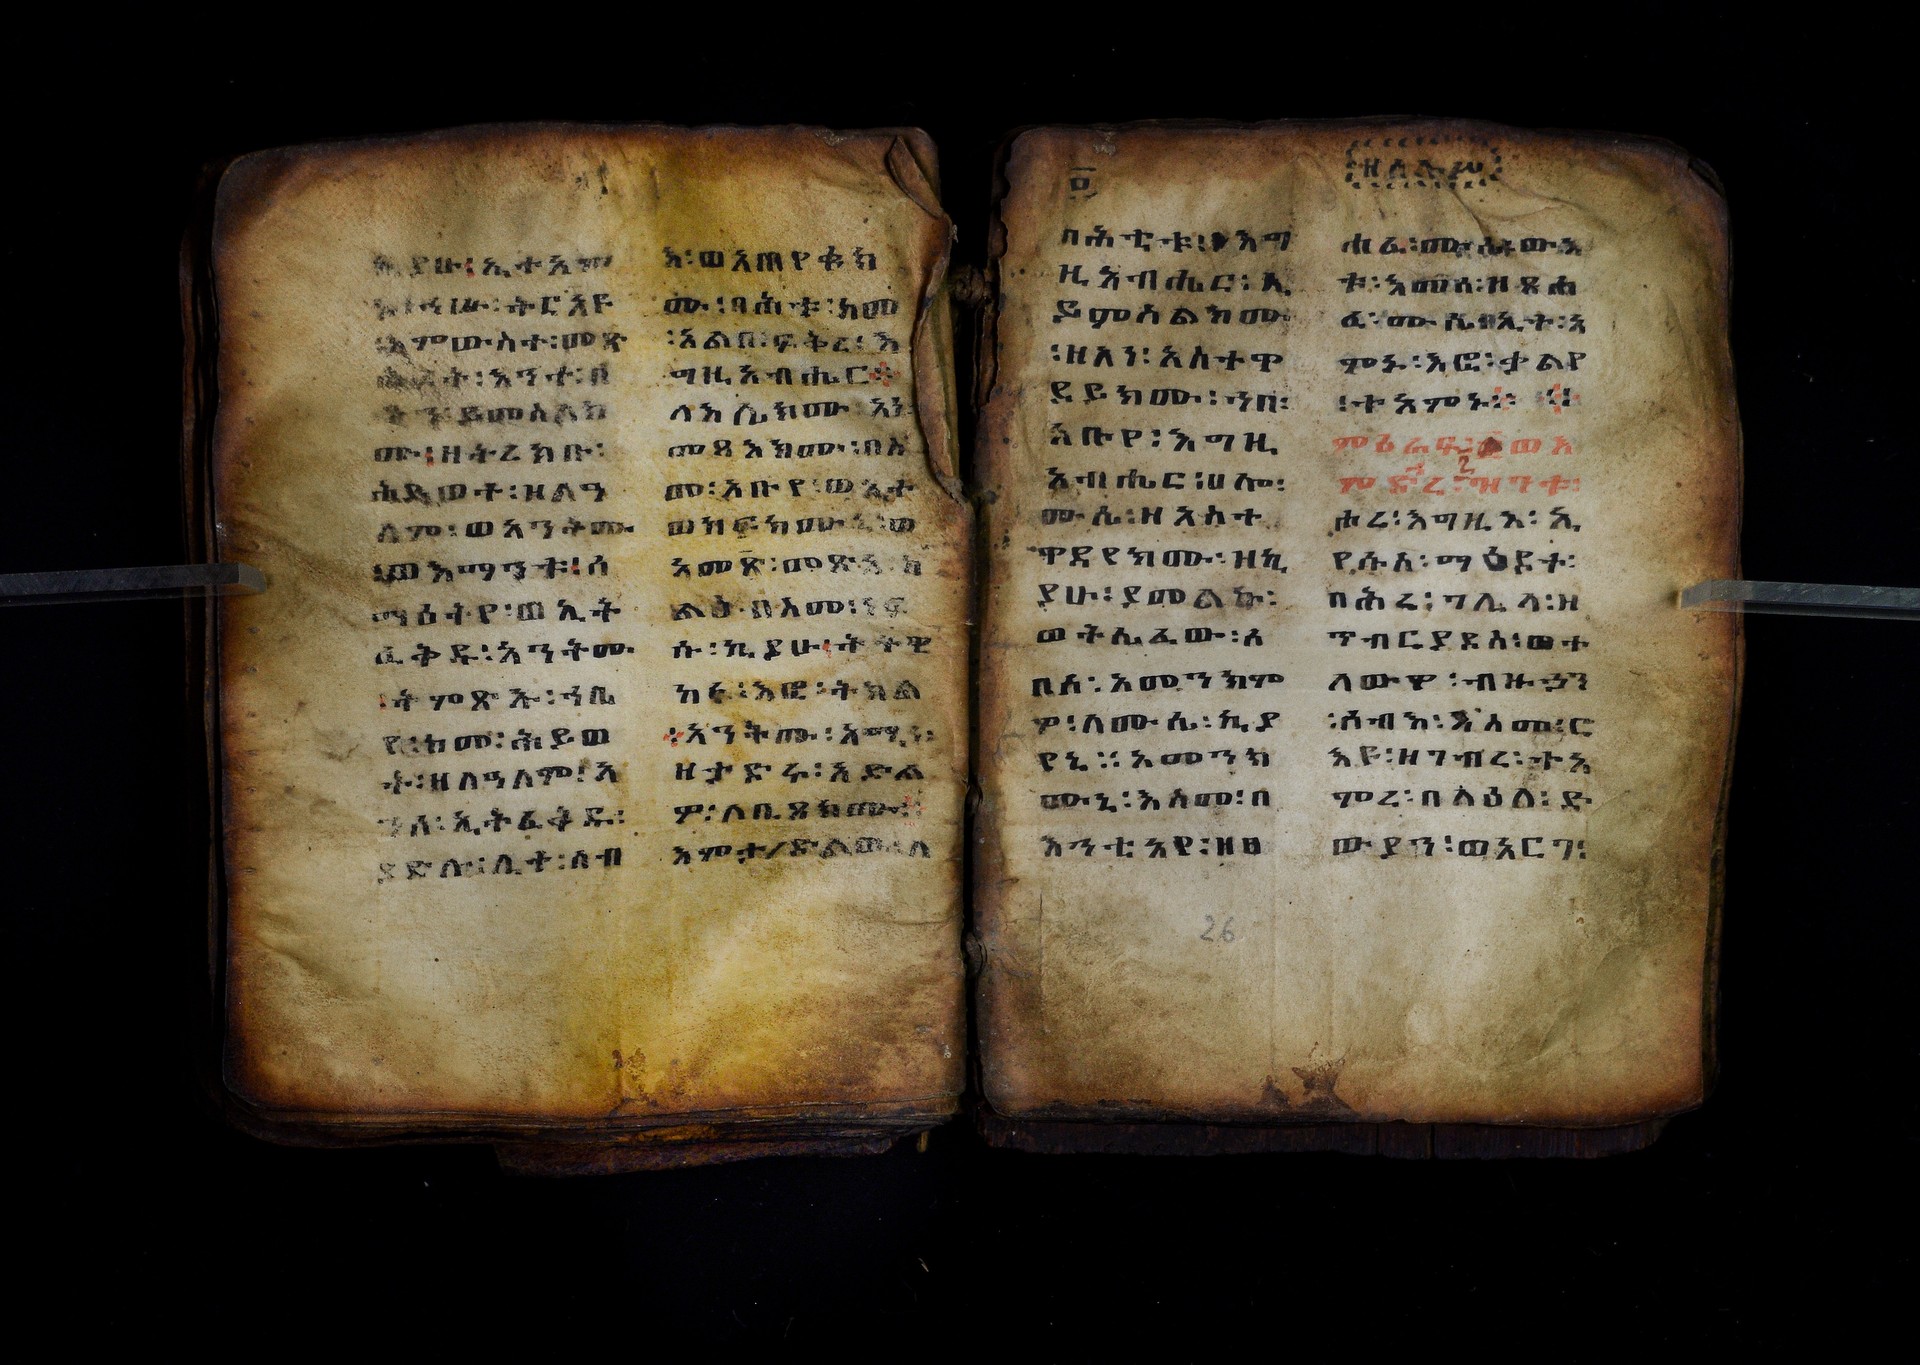 ኪያሁ፡ኢተአም
ንሡ፡ትርአዩ
፡እምውስተ፡መጽ
ሐፍት፡እንተ፡ባ
ይመስለክ
ሙ፡ዘትረክቡ፡
ሕይወተ፡ዘለዓ
ለም፡ወአንትሙ
፡ወእማንቱ፡ሰ
ማዕትየ፡ወኢት
ፈቅዱ፡አንትሙ
፡ትምጽኡ፡ኀቤ
የ፡ከመ፡ሕይወ
ተ፡ዘለዓለም፡አ
ንሰ፡ኢትፈቅዱ፡
ያድሉ፡ሊተ፡ሰብ
እ፡ወአጠየቁክ
ሙ፡ባሕቱ፡ከመ
፡አልብ፡ፍቅረ፡እ
ግዚአብሔር፡
ላእሌክሙ፡አነ፡
መጻእክሙ፡በስ
መ፡አቡየ፡ወኢተ
ወክፍክሙኒ፡ወ
እመጽ፡መጽአ፡ካ
ልዕ፡በስመ፡ነፍ
ሱ፡ኪያሁ፡ትትዌ
ከፉ፡እፎ፡ትክል
፡አንትሙ፡አሚን፡
ዘታድሩ፡አድል
ዎ፡ለቢጽክሙ፡
እምታድልው፡ለ
ዘሰሉም
ባሕቲቱ፡እግ
ዚአብሔር፡ኢ
ይምሰልክሙ
፡ዘአነ፡አስተዋ
ደይክሙ፡ኀበ፡
አቡየ፡እግዚ
አብሔር፡ሀሎ፡
ሙሴ፡ዘአስተ
ዋደየክሙ፡ዝኪ
ያሁ፡ያመልኩ፡
ወትሴፈው፡ለ
በሰ፡አመንክም
ዎ፡ለሙሴ፡ኪያ
የኒ፡፡አመንክ
ሙኒ፡እስመ፡በ
እንቲአየ፡ዘፀ
ሐፈ፡ሙሴ፡ውእ
ቱ፡እመሰ፡ዘጸሐ
ፈ፡ሙሴ፡ኢት፡አ
ምኑ፡እፎ፡ቃልየ
፡ተአምኑ፡
ምዕራፍ፡፰ወእ
ምድኅረ፡ዝንቱ፡
ሐረ፡እግዚእ፡ኢ
የሱስ፡ማዕደተ፡
ባሕረ፡ገሊላ፡ዘ
ጥብርያደስ፡ወተ
ለውዎ፡ብዙኃን
፡ሰብእ፡እስመ፡ር
እዩ፡ዘገብረ፡ተአ
ምረ፡በላዕለ፡ድ
ውያን፡ወእርገ፡
26